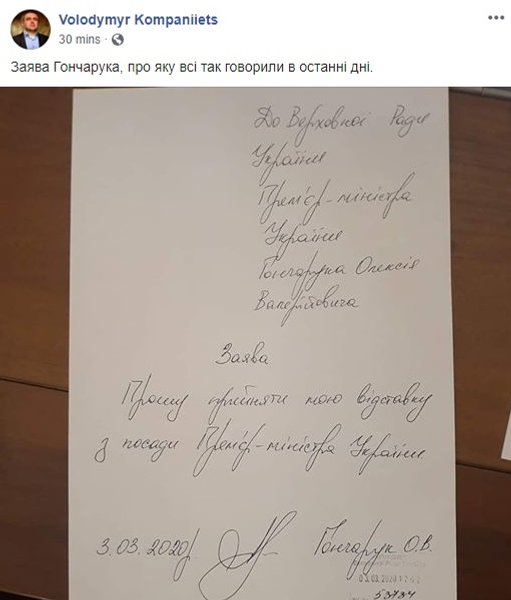 Volodymyr Kompaniiets
30 mins
Заява Гончарука, про яку всі так говорили в останні дні.
До Верховної Ради
України
Прем'єр-міністра
України
Гончарука Олексія
Валерійовича
Заява
Прошу прийняти мою відставку
з посади Прем'єр-міністра України.
3.03.2020р. Гончарук О.В.
03.03.2020
53734